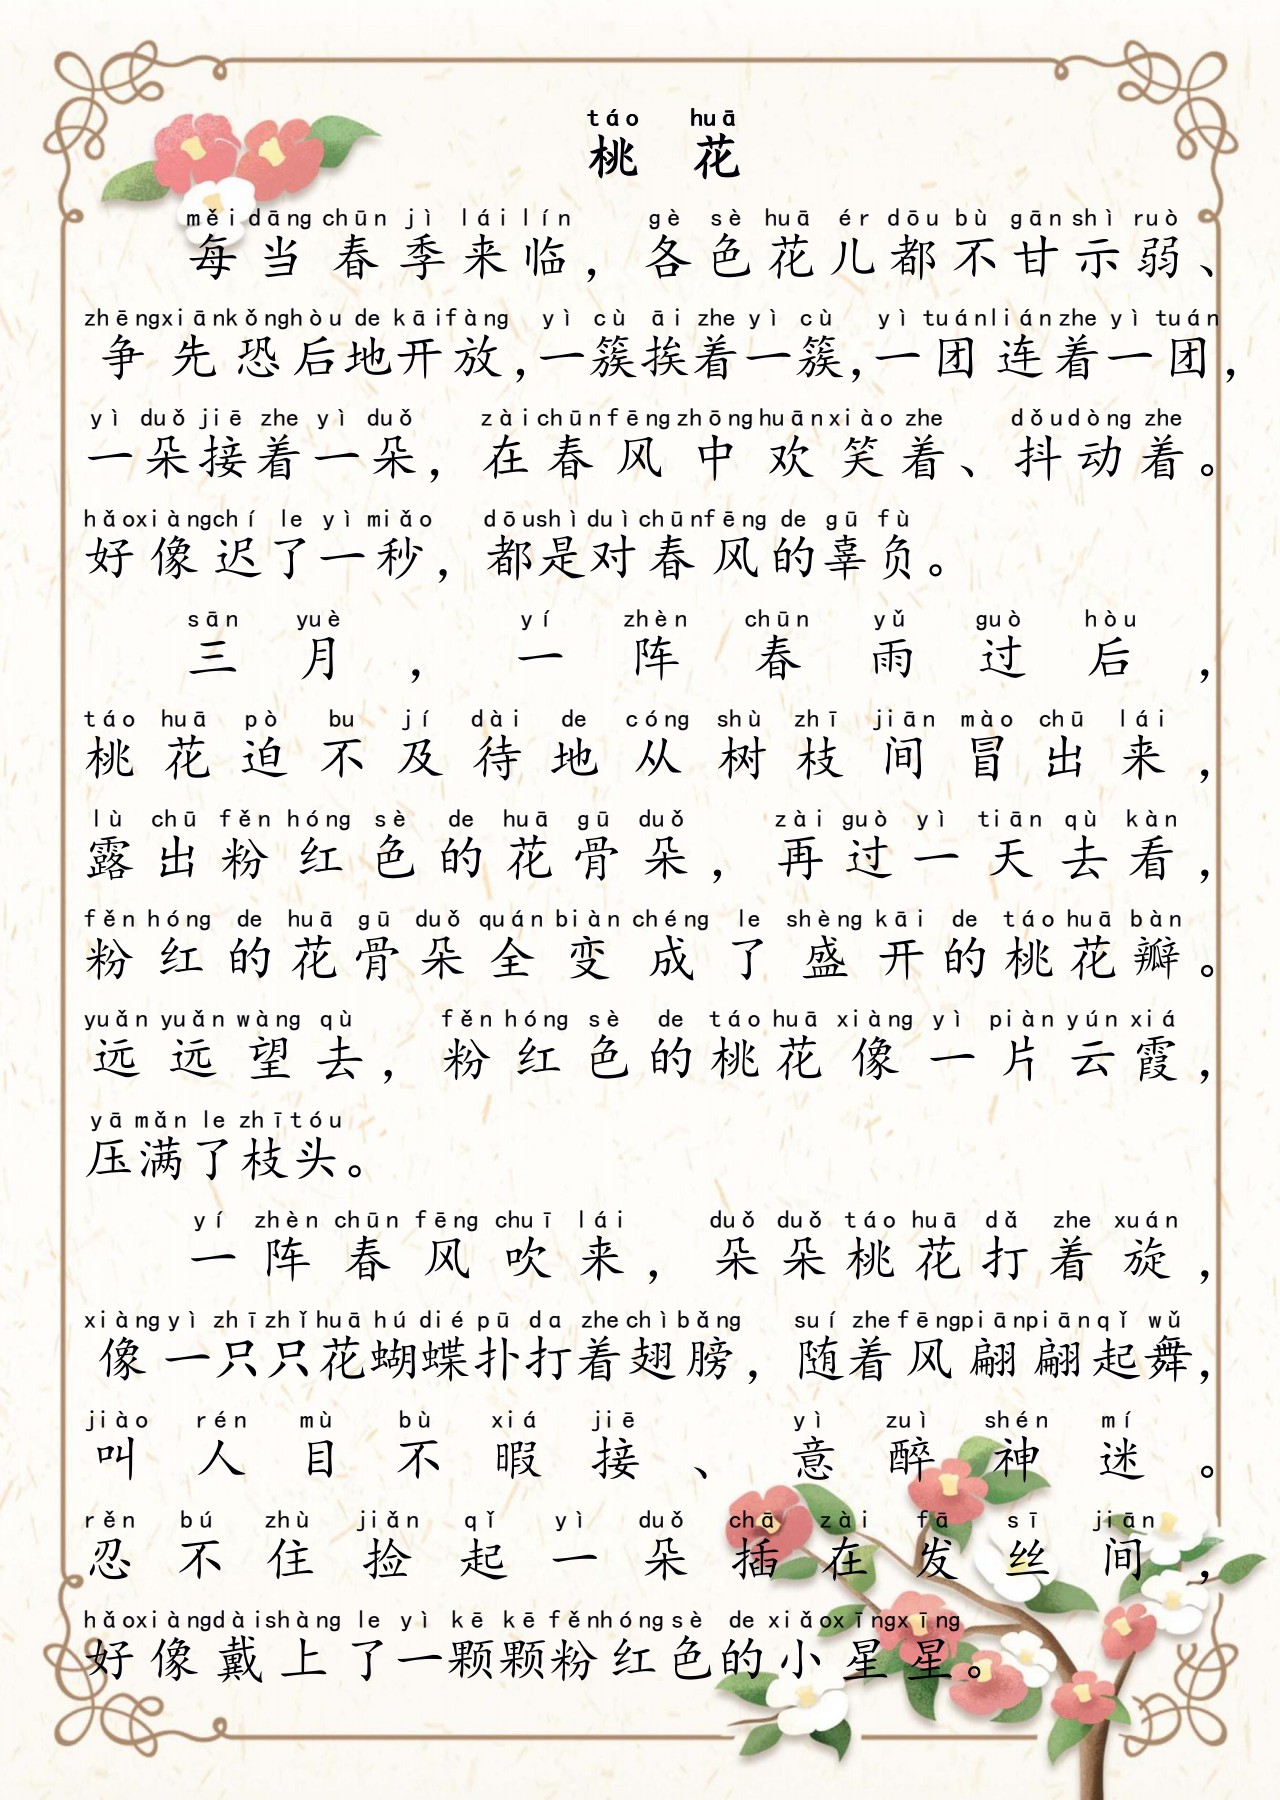 táo huā
桃花
měi dāng chūn jì lái lín gè sè huā ér dōu bù gān shì ruò
每当春季来临，各色花儿都不甘示弱、
zhēng xiān kǒng hòu de kāi fàng yì cù āi zhe yì cù yì tuán lián zhe yì tuán
争先恐后地开放，一簇挨着一簇，一团连着一团，
yì duǒ jiē zhe yì duǒ zài chūn fēng zhōng huān xiào zhe dǒu dòng zhe
一朵接着一朵，在春风中欢笑着、抖动着。
hǎo xiàng chí le yì miǎo dōu shì duì chūn fēng de gū fù
好像迟了一秒，都是对春风的辜负。
sān yuè yí zhèn chūn yǔ guò hòu
三月，一阵春雨过后，
táo huā pò bu jí dài de cóng shù zhī jiān mào chū lái
桃花迫不及待地从树枝间冒出来，
lù chū fěn hóng sè de huā gū duǒ zài guò yì tiān qù kàn
露出粉红色的花骨朵，再过一天去看，
fěn hóng de huā gū duǒ quán biàn chéng le shèng kāi de táo huā bàn
粉红的花骨朵全变成了盛开的桃花瓣。
yuǎn yuǎn wàng qù fěn hóng sè de táo huā xiàng yì piàn yún xiá
远远望去，粉红色的桃花像一片云霞，
yā mǎn le zhī tóu
压满了枝头。
yí zhèn chūn fēng chuī lái duǒ duǒ táo huā dǎ zhe xuán
一阵春风吹来，朵朵桃花打着旋，
xiàng yì zhī zhǐ huā hú dié pū da zhe chì bǎng suí zhe fēng piān piān qǐ wǔ
像一只只花蝴蝶扑打着翅膀，随着风翩翩起舞，
jiào rén mù bù xiá jiē yì zuì shén mí
叫人目不暇接、意醉神迷。
rěn bú zhù jiǎn qǐ yì duǒ chā zài fā sī jiān
忍不住捡起一朵插在发丝间，
hǎo xiàng dài shàng le yì kē kē fěn hóng sè de xiǎo xīng xīng
好像戴上了一颗颗粉红色的小星星。